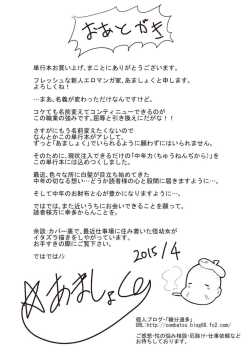 おあとがき
単行本お買い上げ、まことにありがとうございます。
フレッシュな新人エロマンガ家、あましょくと申します。
よろしくね!
…まあ、名義が変わっただけなんですけど。
コケても名前変えてコンティニューできるのが
この職業の強みです。屈辱と引き換えにだがな!!
さすがにもう名前変えたくないので
なんとかこの単行本がアレして、
ずっと「あましょく」でいられるように願わずにはいられません。
そのために、現状注入できるだけの「中年力(ちゅうねんぢから)」を
この単行本には込めつくしました。
目の前だけを見つめて走り始めてきた
中年の切なる想い…どうか読者様の心と股間に届きますように…。
そして中年のお財布と心が豊かになりますように…。
ではでは、また近いうちにお会いできることを願って。
読者様方に幸多からんことを。
余談:カバー裏で、最近仕事場に住み着いている怪幼女が
イタズラ描きをしやがっています。
お手すきの際にご覧下さい。
ではでは//
2015/4
あましょく
個人ブログ・「糠分過多」
URL:http://oombatou.blog68.fc2.com/
ご感想・性の悩み相談・厄除け・仕事依頼など
お待ちしております。